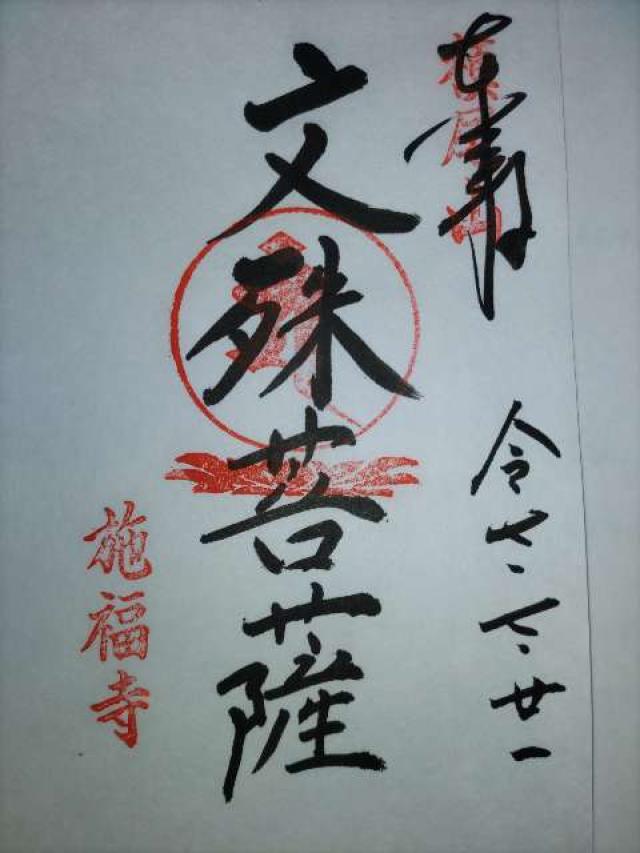 奉拝
槇尾山
令七、七、廿一
文殊菩薩
施福寺